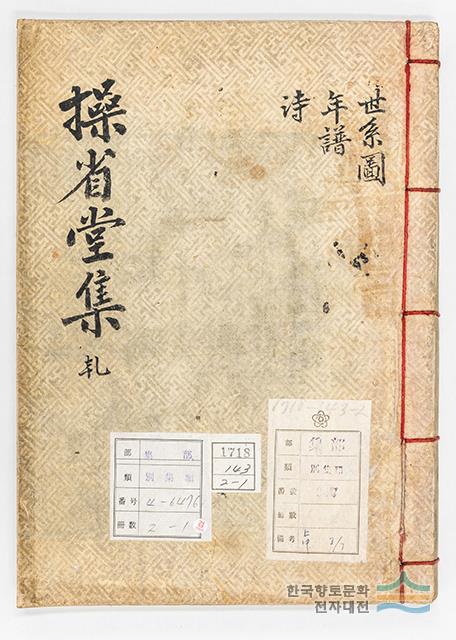 世系圖
年譜
詩
操省堂集
乾
部 集部
類 別集類
番号 4-6476
冊数 2-1
1718
143
2-1
部 集部
類 別集類
番號
冊數
備考
한국향토문화
전자대전